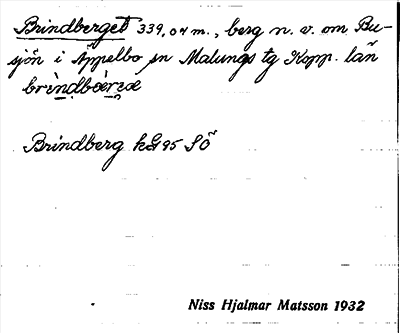 Brindberget 339,04 m., berg n. v. om Bu-
sjön i Äppelbo sn Malungs tg Kopp. län
brìndbærꞬæ
Brindberg kG 95 SÖ
Niss Hjalmar Matsson 1932